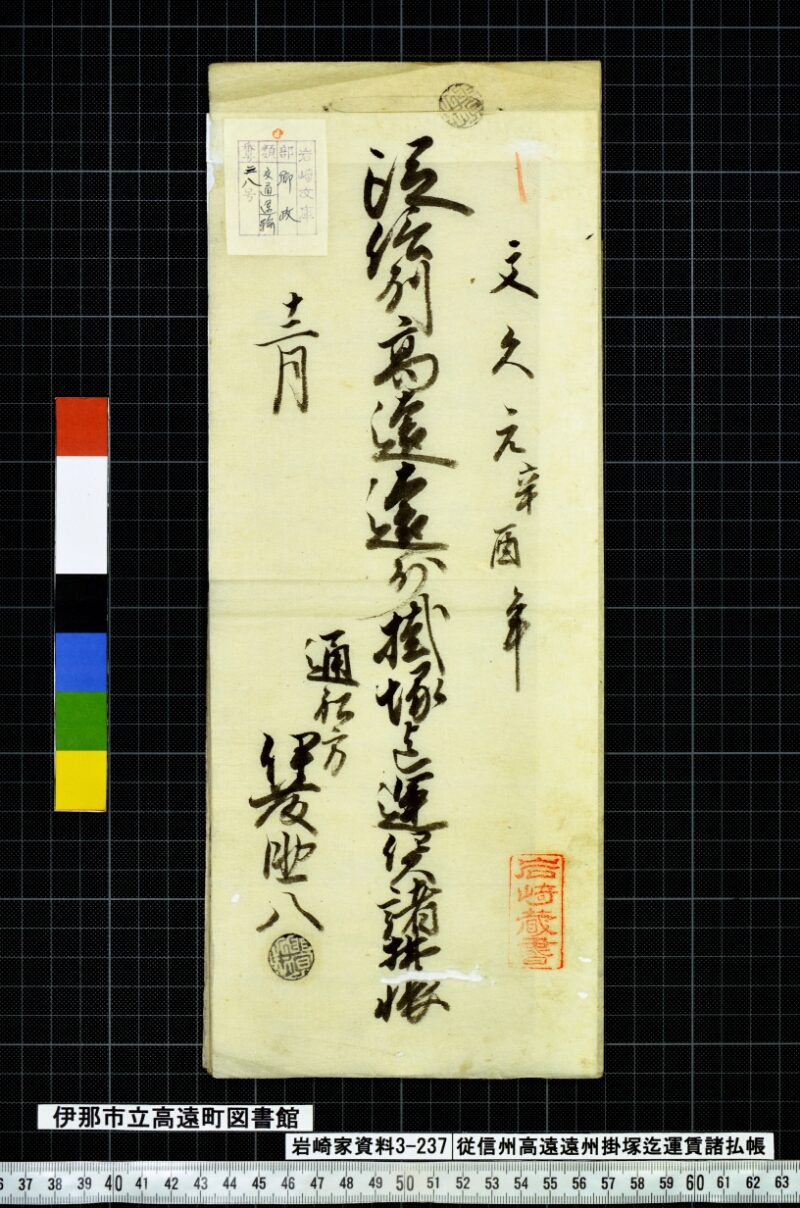 文久元辛酉年
従信州高遠遠州掛塚迄運賃諸払帳
十二月
通船方
伊藤
八
岩崎蔵書
岩崎文庫
部 郷政
類 交通運輸
号
伊那市立高遠町図書館
岩崎家資料3-237 従信州高遠遠州掛塚迄運賃諸払帳
37 38 39 40 41 42 43 44 45 46 47 48 49 50 51 52 53 54 55 56 57 58 59 60 61 62 63